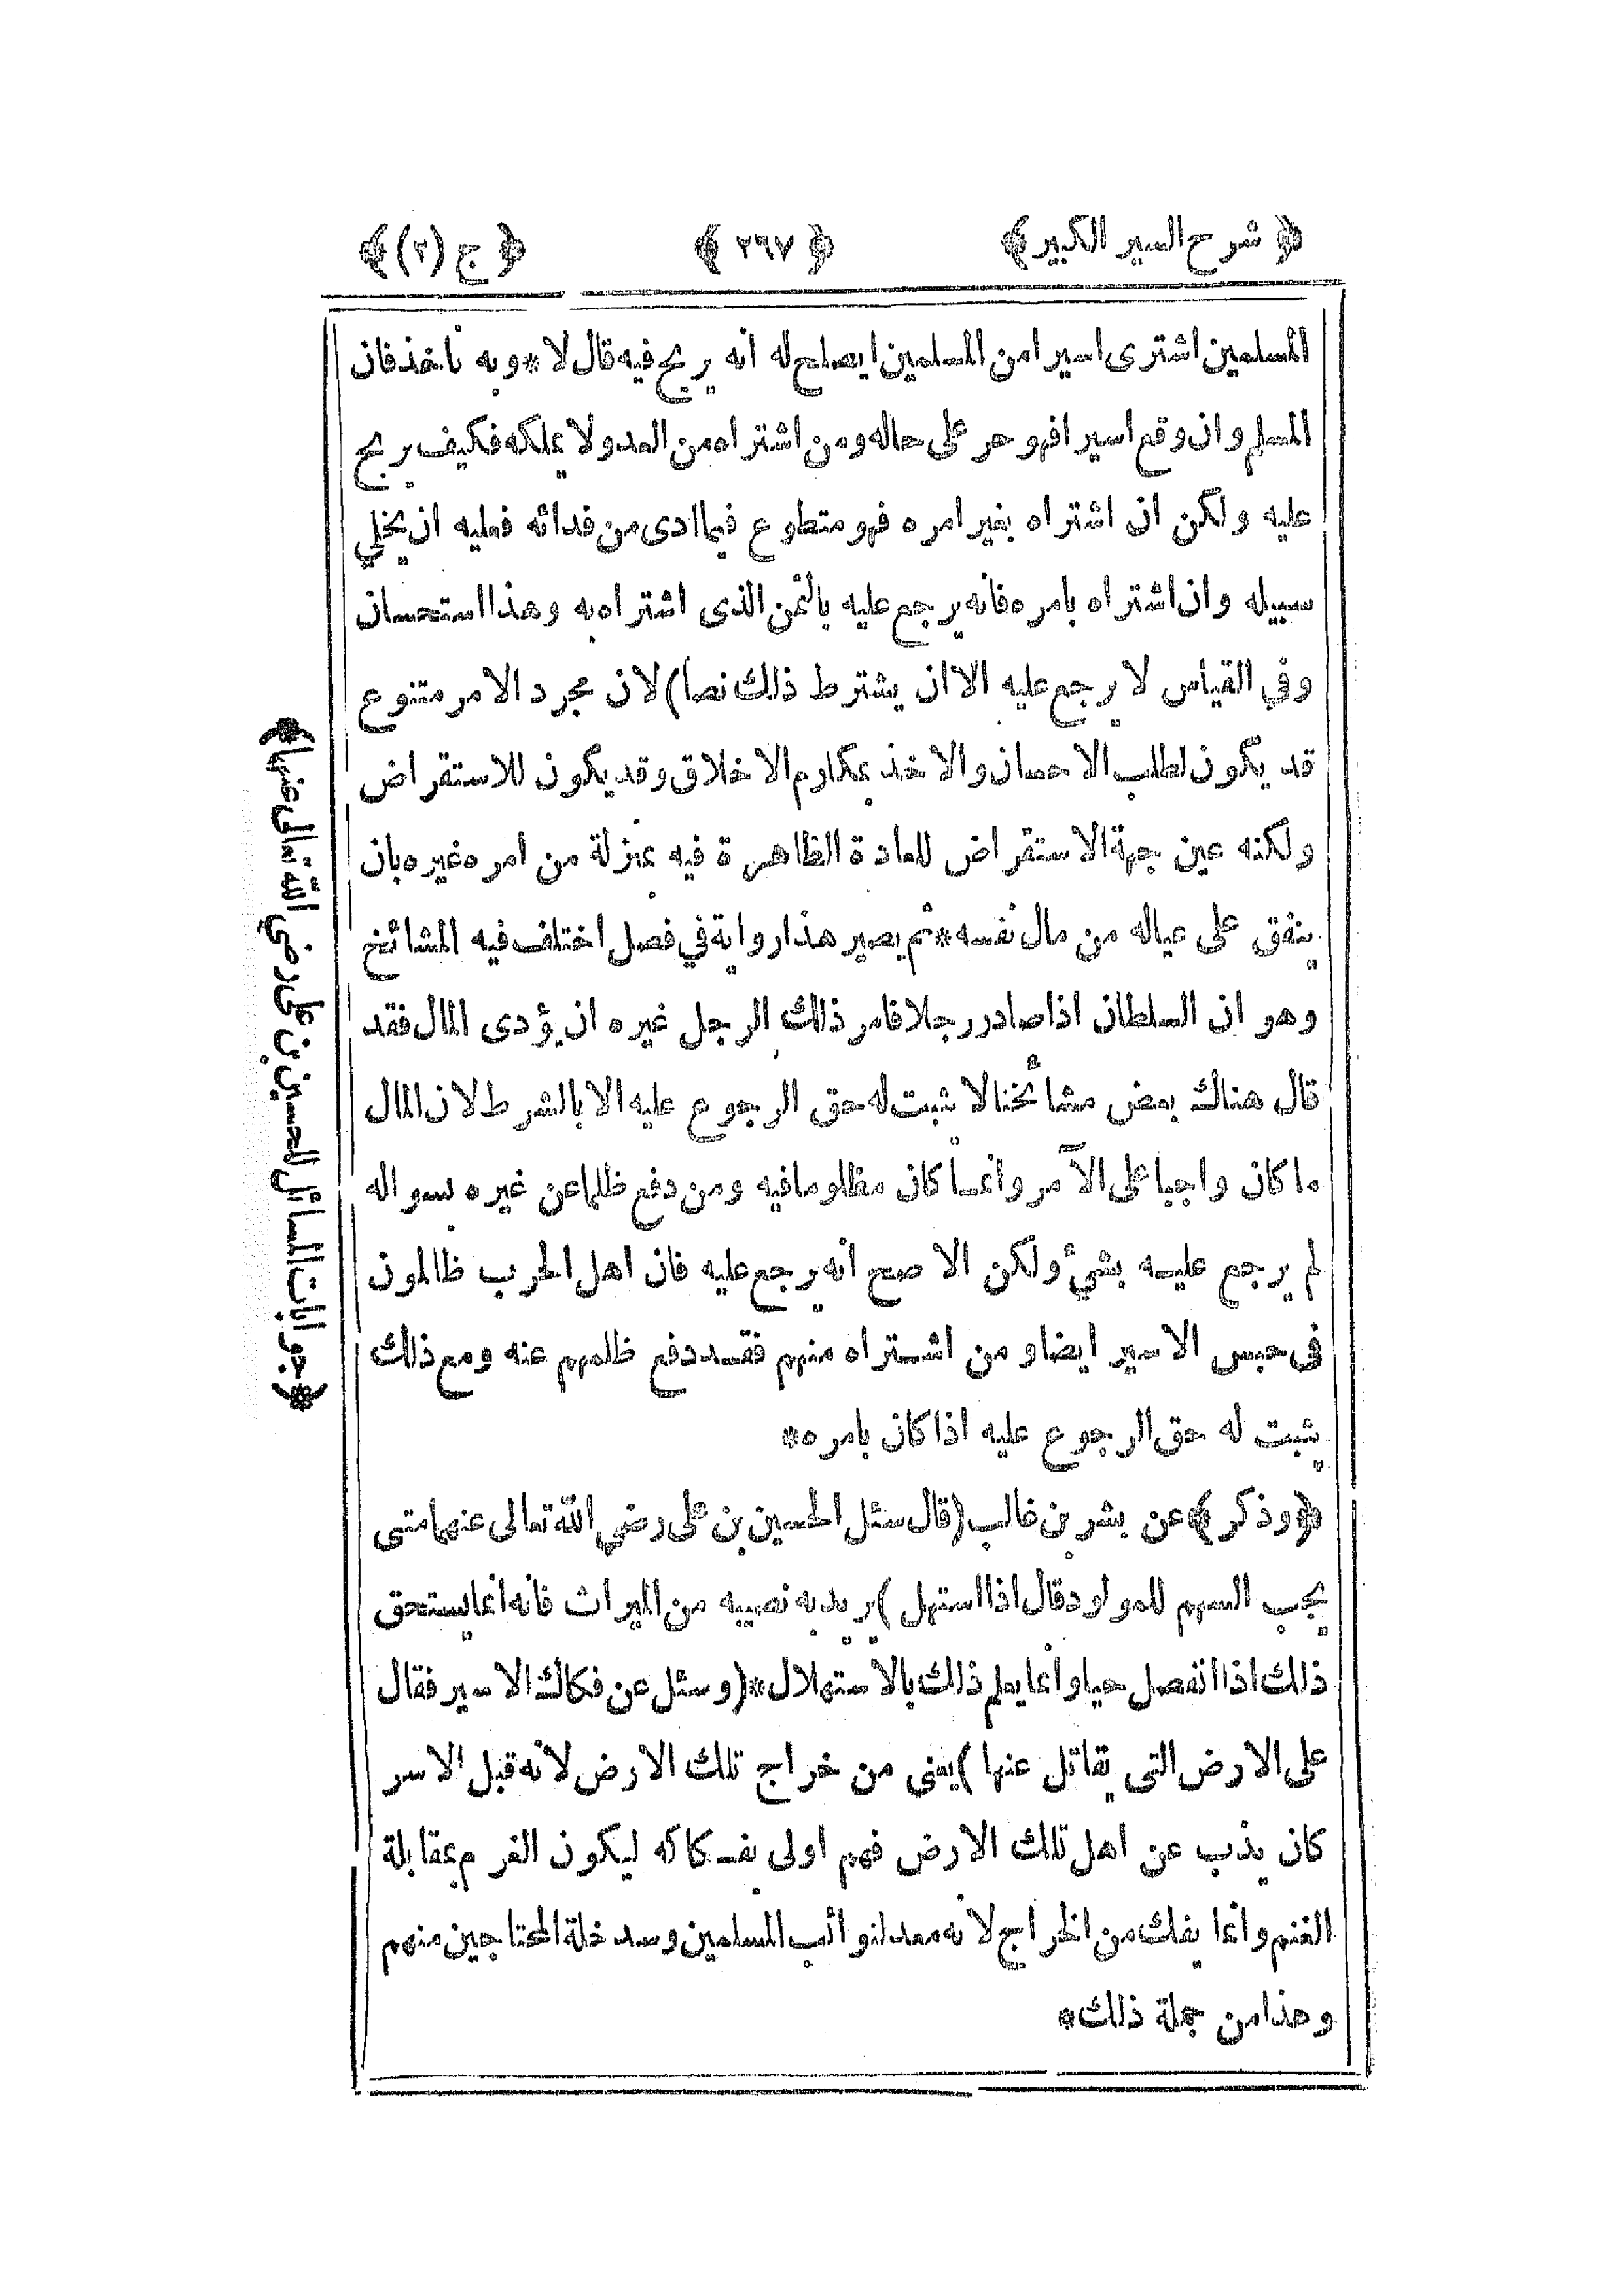 ﴿ شرح السير الكبير ﴾ ﴿ ٢٦٧ ﴾ ﴿ ج (٢) ﴾
المسلمين اشترى اسيرا من المسلمين ايصلح له انه يربح فيه قال لا * وبه نأخذ فان
المسلم وان وقع اسيرا فهو حر على حاله ومن اشتراه من العدو لا يملكه فكيف يربح
عليه ولكن ان اشتراه بغير امره فهو متطوع فيما ادى من فدائه فعليه ان يخلي
سبيله وان اشتراه بامره فانه يرجع عليه بالثمن الذى اشتراه به وهذا استحسان
وفي القياس لا يرجع عليه الا ان يشترط ذلك نصا) لان مجرد الامر متنوع
قد يكون لطلب الاحسان والاخذ بمكارم الاخلاق وقد يكون للاستقراض
ولكنه عين جهة الاستقراض للعادة الظاهرة فيه بمنزلة من امره غيره بان
ينفق على عياله من مال نفسه * ثم يصير هذا رواية في فصل اختلف فيه المشائخ
وهو ان السلطان اذا صادر رجلا فامر ذلك الرجل غيره ان يؤدى المال فقد
قال هناك بعض مشائخنا لا يثبت له حق الرجوع عليه الا بالشرط لان المال
ما كان واجبا على الآمر وانما كان مظلوما فيه ومن دفع ظلما عن غيره بسواله
لم يرجع عليه بشيء ولكن الاصح انه يرجع عليه فان اهل الحرب ظالمون
فى حبس الاسير ايضا ومن اشتراه منهم فقد دفع ظلمهم عنه ومع ذلك
يثبت له حق الرجوع عليه اذا كان بامره *
﴿ وذكر ﴾ عن بشر بن غالب (قال سئل الحسين بن على رضي الله تعالى عنهما متى
يجب السهم للمولود قال اذا استهل) يريد به نصيبه من الميراث فانه انما يستحق
ذلك اذا انفصل حيا وانما يعلم ذلك بالاستهلال * (وسئل عن فكاك الاسير فقال
على الارض التى يقاتل عنها) يعنى من خراج تلك الارض لانه قبل الاسر
كان يذب عن اهل تلك الارض فهم اولى بفكاكه ليكون الغرم بمقابلة
الغنم وانما يفك من الخراج لانه معد لنوائب المسلمين وسد خلة المحتاجين منهم
وهذا من جملة ذلك *
﴿ جوابات المسائل للحسين بن على رضي الله تعالى عنهما ﴾